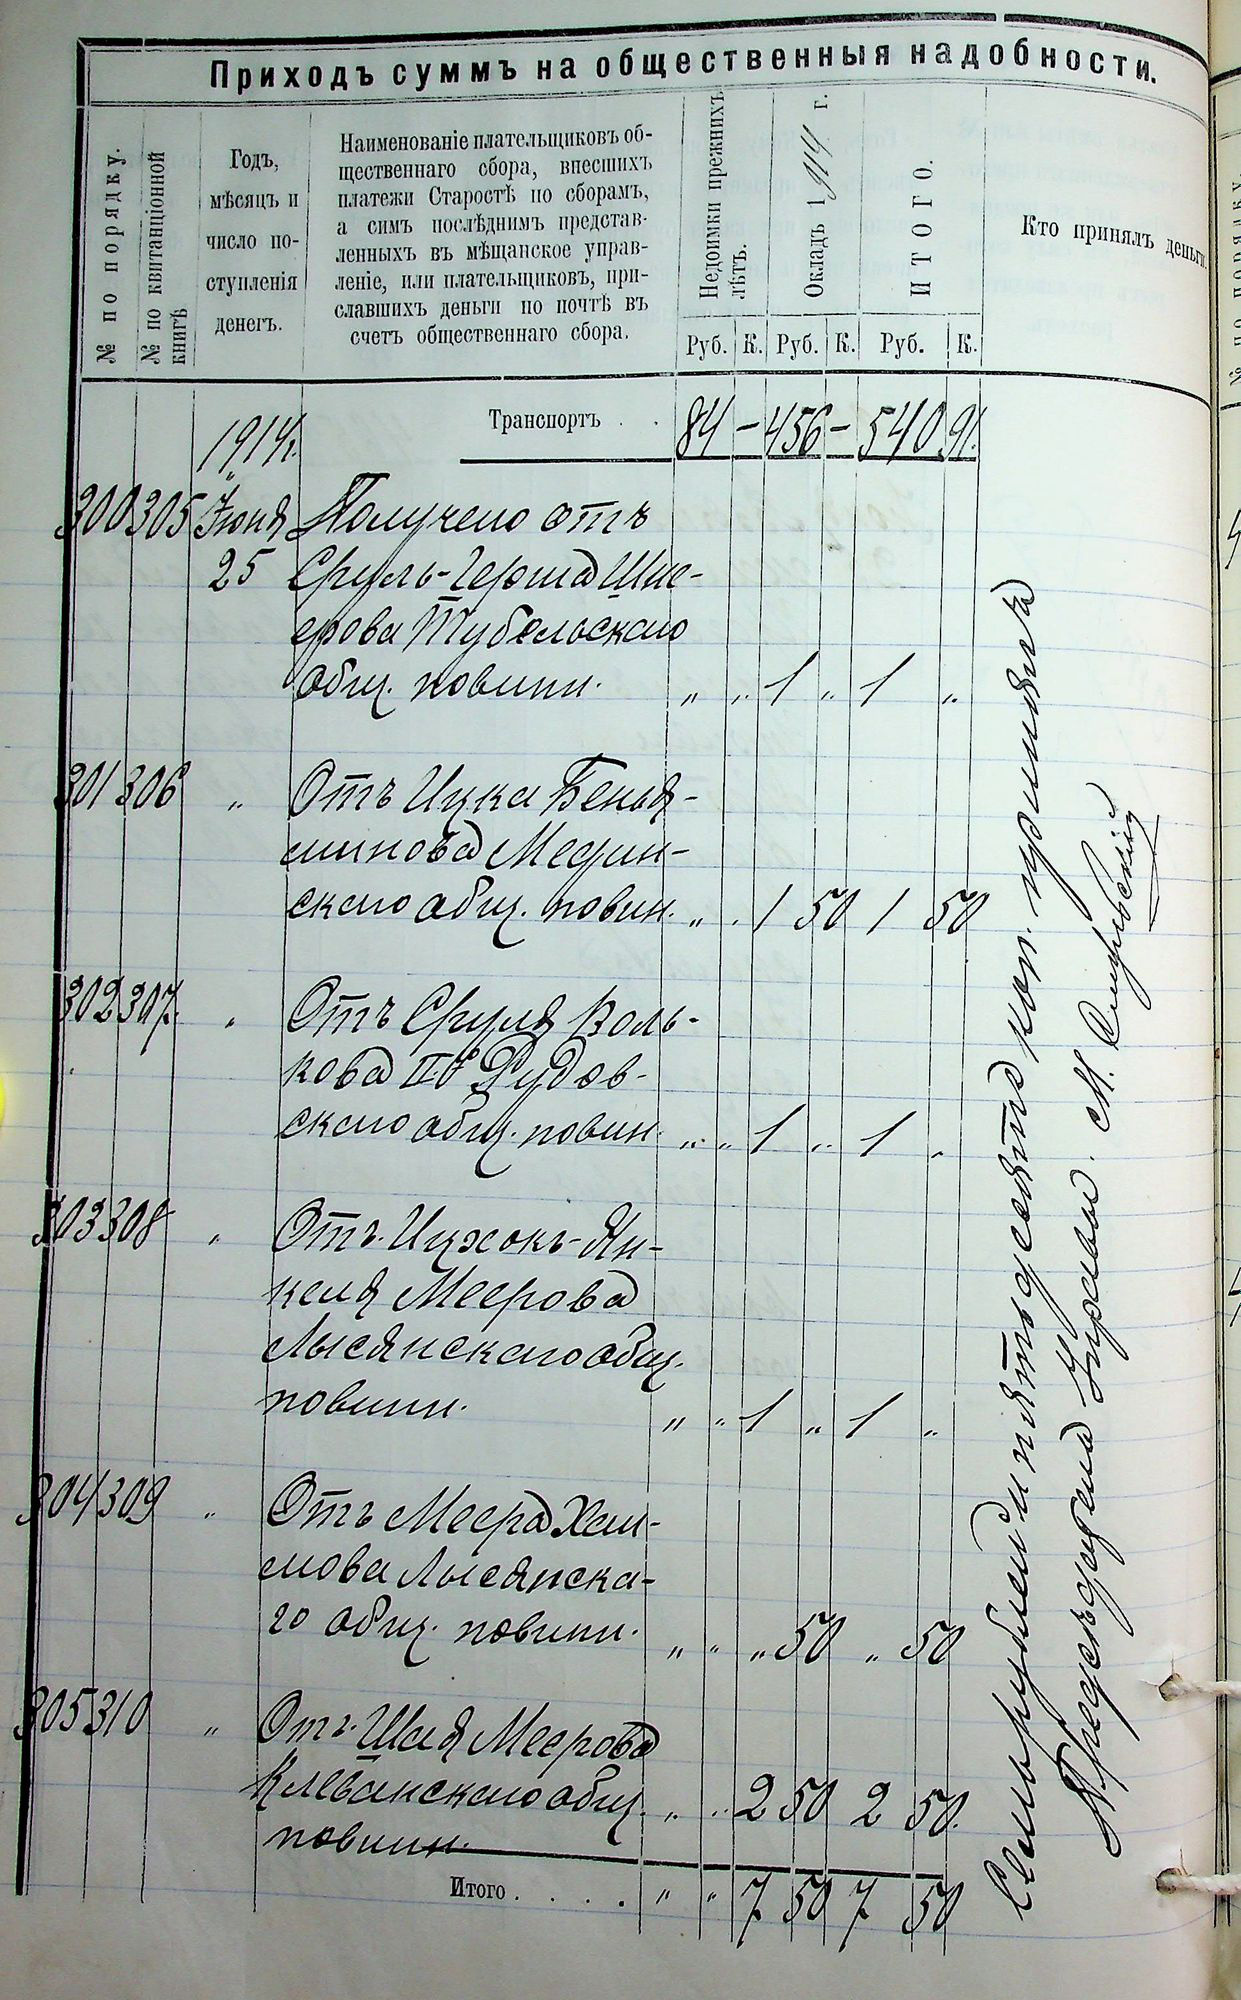 Приходъ суммъ на общественныя надобности.
№ по порядку.
№ по квитанціонной
книгѣ
Годъ,
мѣсяцъ и
число по-
ступленія
денегъ.
Наименованіе плательщиковъ об-
щественнаго сбора, внесшихъ
платежи Старостѣ по сборамъ,
а симъ послѣднимъ представ-
ленныхъ въ мѣщанское управ-
леніе, или плательщиковъ, при-
славшихъ деньги по почтѣ въ
счетъ общественнаго сбора.
Недоимки прежнихъ
лѣтъ.
Окладъ 1914 г.
ИТОГО.
Кто принялъ деньги.
Руб. К. Руб. К. Руб. К.
Транспортъ . . 84 - 456 - 540 91.
1914 г.
300 305 Іюня Получено отъ
25 Сруль-Герша Шне-
ерова Тубельскаго
общ. повинн. " " 1 " 1 "
301 306 " Отъ Ицка Бенья-
минова Медин-
скаго общ. повин. " " 1 50 1 50
302 307. " Отъ Сруля Воль-
кова II-го Дудов-
скаго общ. повин. " " 1 " 1 "
303 308 " Отъ Ицхокъ-Ян-
келя Меерова
Лысянскаго общ.
повинн. " " 1 " 1 "
304 309 " Отъ Меера Хаи-
мова Лысянска-
го общ. повинн. " " " 50 " 50
305 310 " Отъ Шая Меерова
Клеванскаго общ.
повинн. " " 2 50 2 50.
Итого . . . . " " 7 50 7 50
Семь рублей и пятьдесятъ коп. принялъ
Предсѣдатель Управы М.